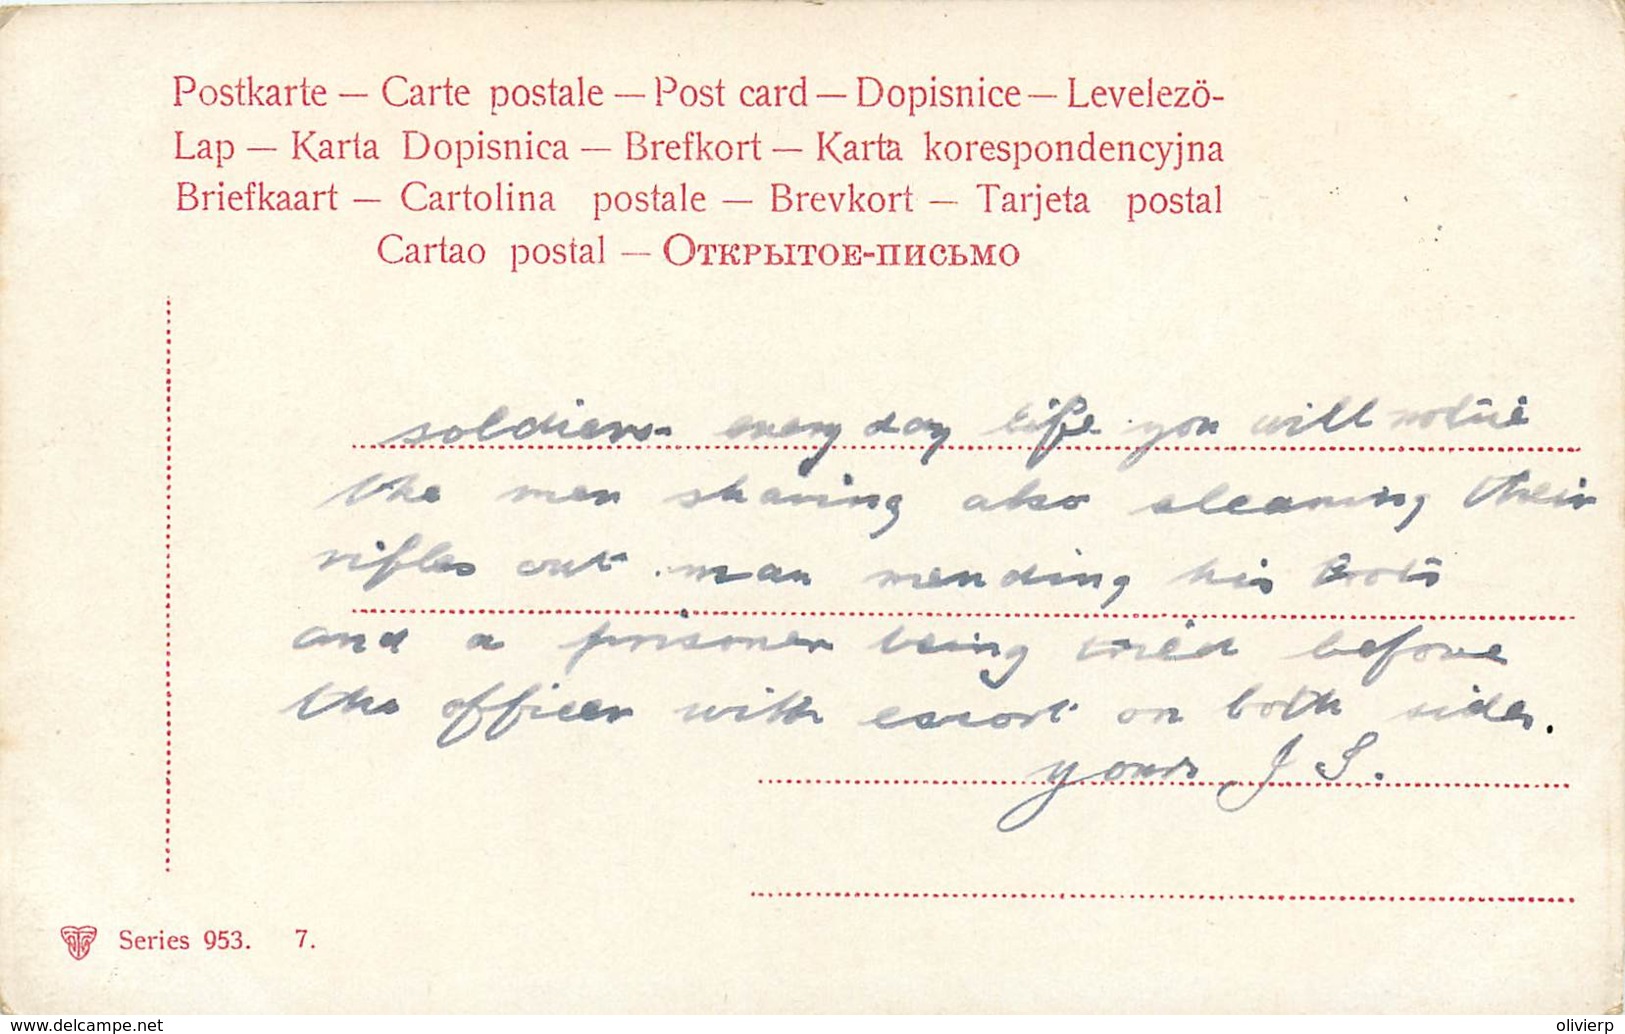 Postkarte — Carte postale — Post card — Dopisnice — Levelező-
Lap — Karta Dopisnica — Brefkort — Karta korespondencyjna
Briefkaart — Cartolina postale — Brevkort — Tarjeta postal
Cartao postal — Открытое-письмо
soldiers every day life you will notice
the men shaving also cleaning their
rifles out. man mending his boots
and a prisoner being tried before
the officer with escort on both sides.
yours J S.
Series 953. 7.
www.delcampe.net
olivierp